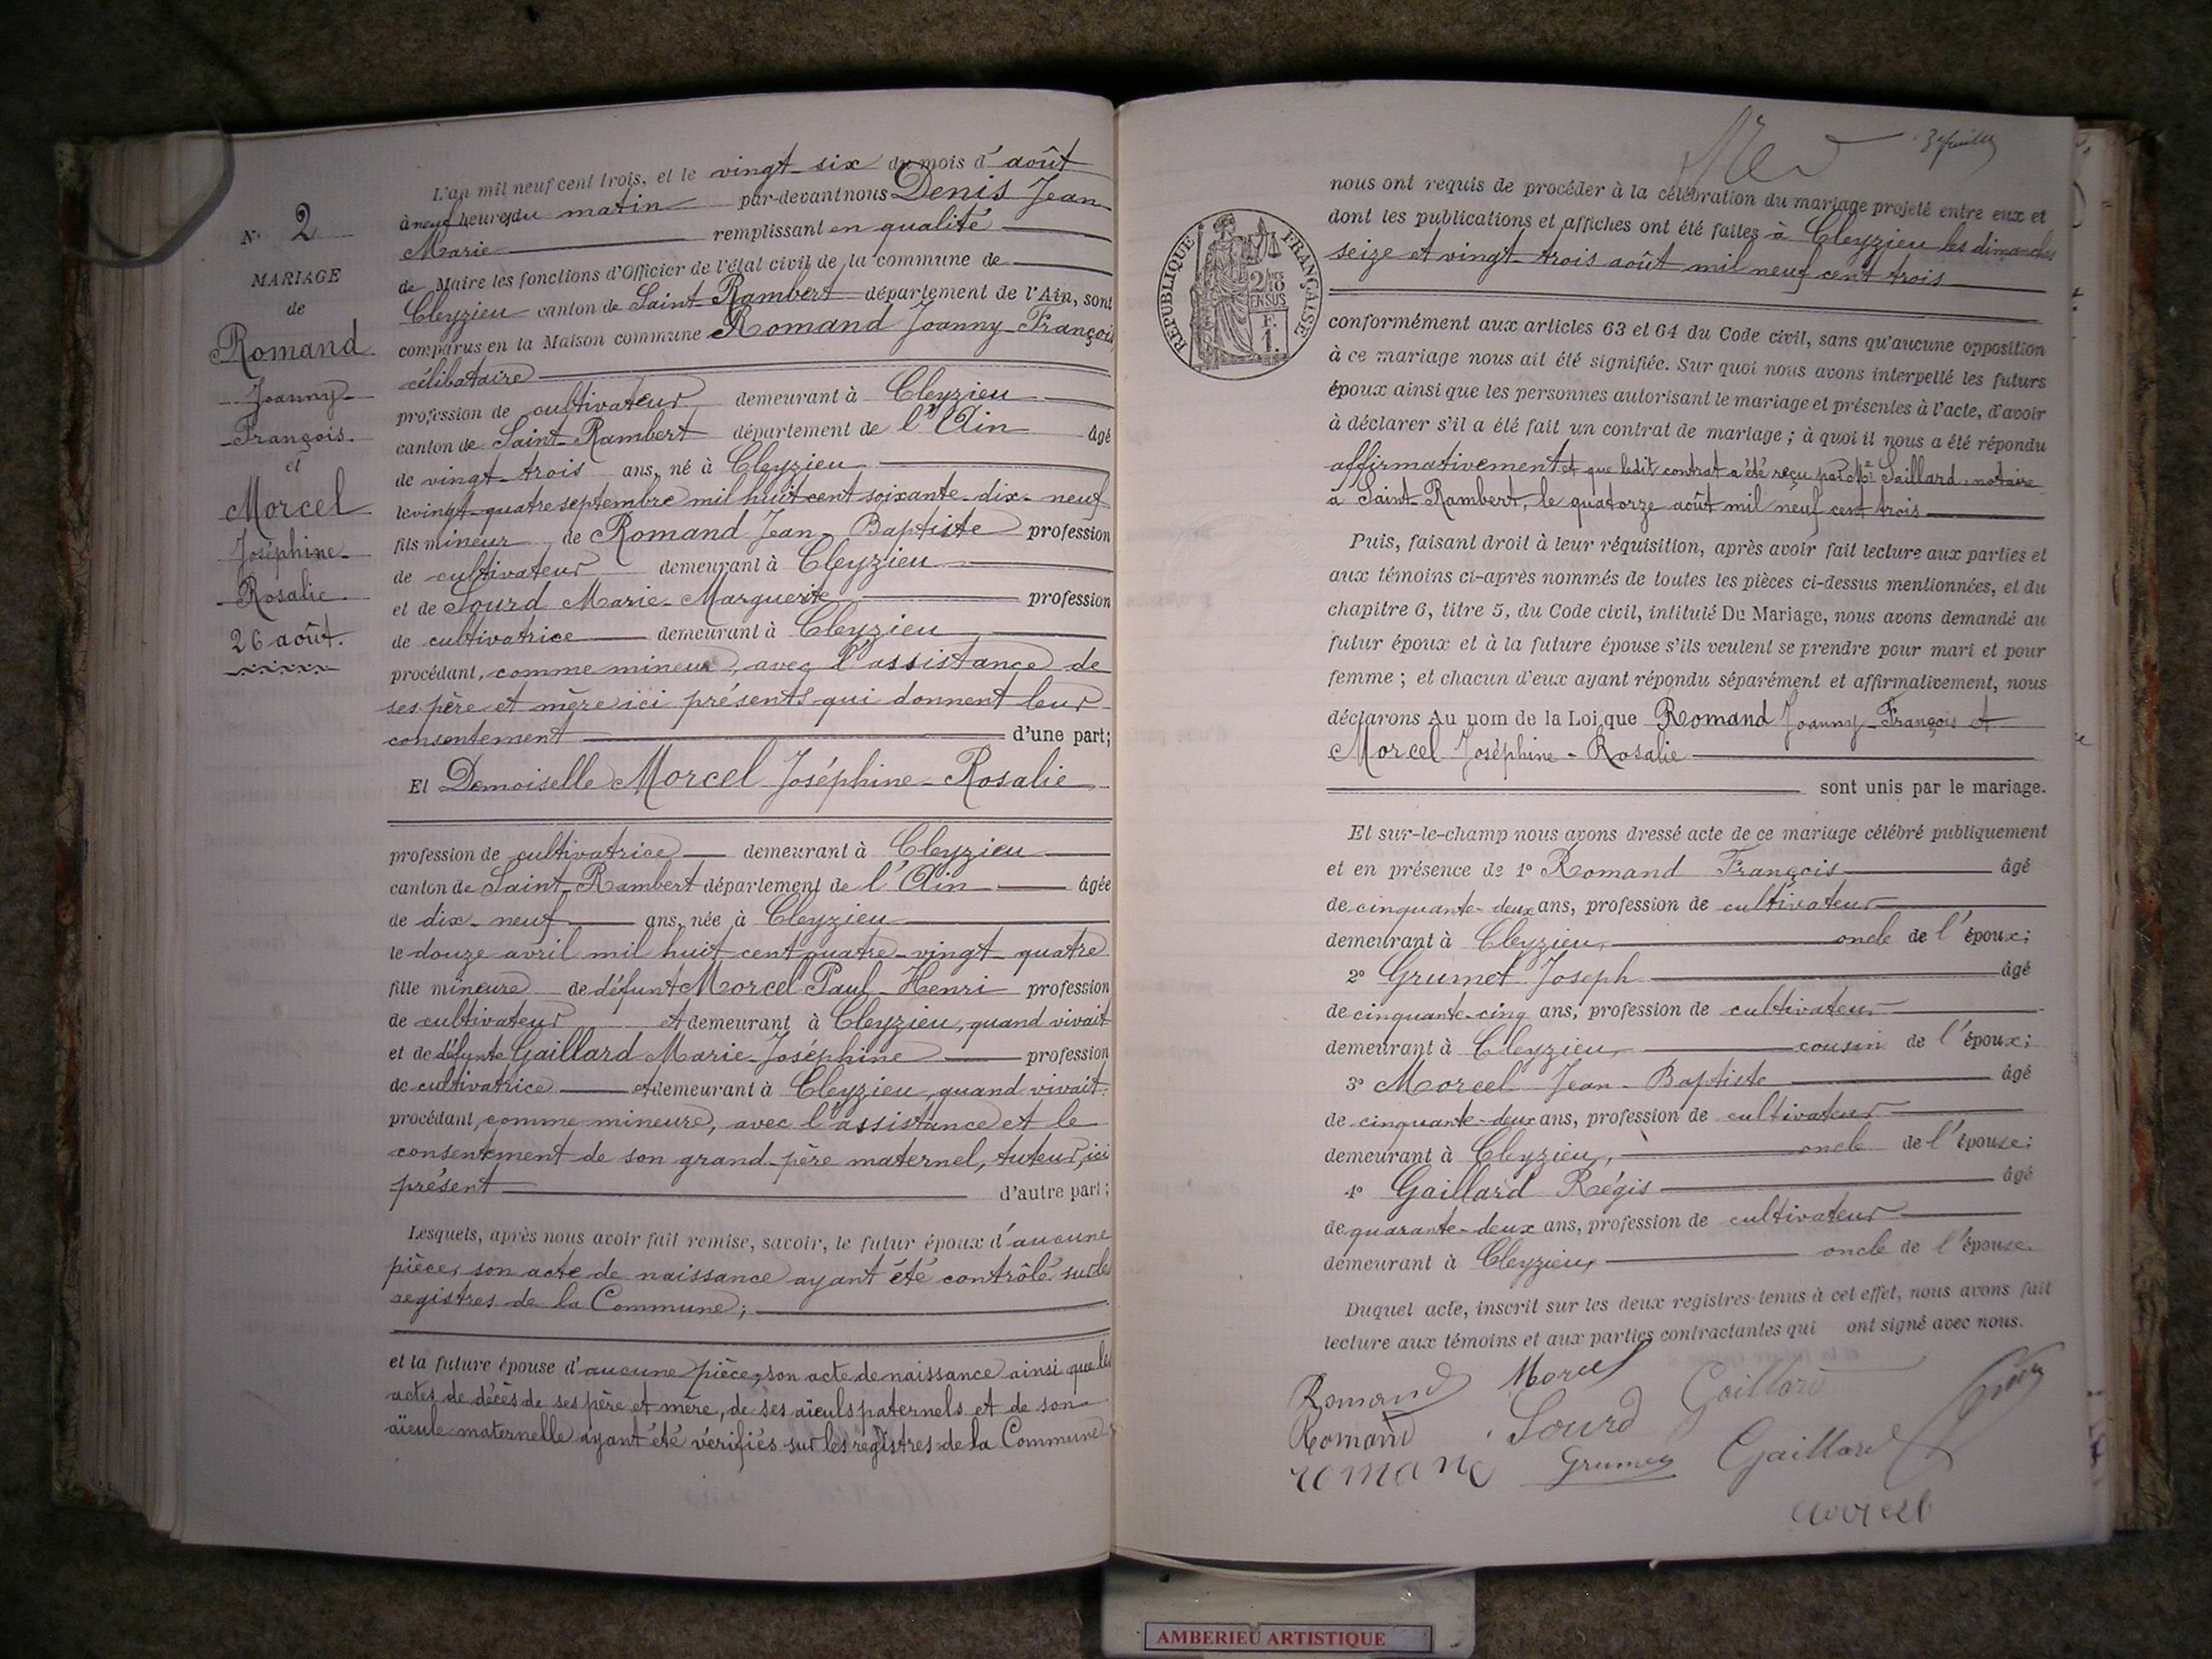 N° 2
MARIAGE
de
Romand
Joanny-
François.
et
Morcel
Joséphine-
Rosalie.
26 août.
L'an mil neuf cent trois, et le vingt-six du mois d'août
à neuf heures du matin par-devant nous Denis Jean
Marie remplissant en qualité
de Maire les fonctions d'Officier de l'état civil de la commune de
Cleyzieu canton de Saint-Rambert département de l'Ain, sont
comparus en la Maison commune Romand Joanny-François,
célibataire
profession de cultivateur demeurant à Cleyzieu
canton de Saint-Rambert département de l'Ain âgé
de vingt-trois ans, né à Cleyzieu
le vingt-quatre septembre mil huit cent soixante-dix-neuf
fils mineur de Romand Jean-Baptiste profession
de cultivateur demeurant à Cleyzieu
et de Sourd Marie-Marguerite profession
de cultivatrice demeurant à Cleyzieu
procédant, comme mineur, avec l'assistance de
ses père et mère ici présents qui donnent leur
consentement d'une part;
Et Demoiselle Morcel Joséphine-Rosalie
profession de cultivatrice demeurant à Cleyzieu
canton de Saint-Rambert département de l'Ain âgée
de dix-neuf ans, née à Cleyzieu
le douze avril mil huit cent quatre-vingt-quatre
fille mineure de défunt Morcel Paul-Henri profession
de cultivateur et demeurant à Cleyzieu, quand vivait
et de défunte Gaillard Marie-Joséphine profession
de cultivatrice et demeurant à Cleyzieu, quand vivait.
procédant, comme mineure, avec l'assistance et le
consentement de son grand-père maternel, tuteur, ici
présent d'autre part;
Lesquels, après nous avoir fait remise, savoir, le futur époux d'aucune
pièce, son acte de naissance ayant été contrôlé sur les
registres de la Commune;
et la future épouse d'aucune pièce, son acte de naissance ainsi que les
actes de décès de ses père et mère, de ses aïeuls paternels et de son
aïeule maternelle ayant été vérifiés sur les registres de la Commune
3e feuillet
RÉPUBLIQUE FRANÇAISE
nous ont requis de procéder à la célébration du mariage projeté entre eux et
dont les publications et affiches ont été faites à Cleyzieu les dimanches
seize et vingt-trois août mil neuf cent trois
conformément aux articles 63 et 64 du Code civil, sans qu'aucune opposition
à ce mariage nous ait été signifiée. Sur quoi nous avons interpellé les futurs
époux ainsi que les personnes autorisant le mariage et présentes à l'acte, d'avoir
à déclarer s'il a été fait un contrat de mariage; à quoi il nous a été répondu
affirmativement et que ledit contrat a été reçu par Me Saillard notaire
à Saint-Rambert, le quatorze août mil neuf cent trois
Puis, faisant droit à leur réquisition, après avoir fait lecture aux parties et
aux témoins ci-après nommés de toutes les pièces ci-dessus mentionnées, et du
chapitre 6, titre 5, du Code civil, intitulé Du Mariage, nous avons demandé au
futur époux et à la future épouse s'ils veulent se prendre pour mari et pour
femme; et chacun d'eux ayant répondu séparément et affirmativement, nous
déclarons Au nom de la Loi, que Romand Joanny-François et
Morcel Joséphine-Rosalie
sont unis par le mariage.
Et sur-le-champ nous avons dressé acte de ce mariage célébré publiquement
et en présence de 1° Romand François âgé
de cinquante-deux ans, profession de cultivateur
demeurant à Cleyzieu, oncle de l'époux;
2° Grumet Joseph âgé
de cinquante-cinq ans, profession de cultivateur
demeurant à Cleyzieu, cousin de l'époux;
3° Morcel Jean-Baptiste âgé
de cinquante-deux ans, profession de cultivateur
demeurant à Cleyzieu, oncle de l'épouse;
4° Gaillard Régis âgé
de quarante-deux ans, profession de cultivateur
demeurant à Cleyzieu, oncle de l'épouse.
Duquel acte, inscrit sur les deux registres tenus à cet effet, nous avons fait
lecture aux témoins et aux parties contractantes qui ont signé avec nous.
Romand Morcel Gaillard
Romand Sourd
romand Grumet Gaillard
morcel
AMBERIEU ARTISTIQUE